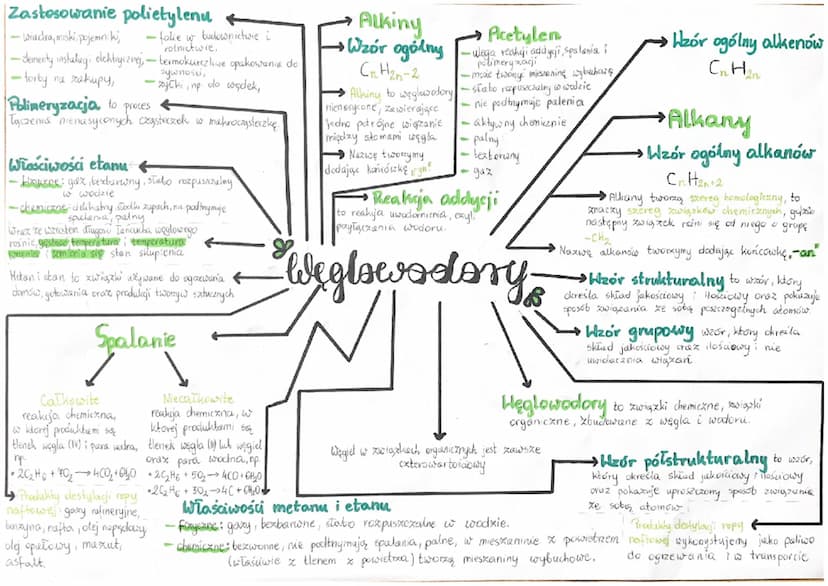 Zastosowanie polietylenu
- wiadra, miski, pojemniki,
- elementy instalacji elektrycznej,
- torby na zakupy,
- folie w budownictwie i
rolnictwie,
- termokurczliwe opakowania do
żywności,
- żyłki, np. do wędek,
Polimeryzacja to proces
łączenia nienasyconych cząsteczek w makrocząsteczkę.
Właściwości etanu
- fizyczne: gaz, bezbarwny, słabo rozpuszczalny
w wodzie
- chemiczne: delikatny słodki zapach, nie podtrzymuje
spalania, palny
Wraz ze wzrostem długości łańcucha węglowego
rośnie, gęstość temperatura i temperatura
zmienia się stan skupienia
Metan i etan to związki używane do ogrzewania
domów, gotowania oraz produkcji tworzyw sztucznych
Alkiny
Wzór ogólny
CnH2n-2
Alkiny to węglowodory
nienasycone, zawierające
jedno potrójne wiązanie
między atomami węgla
Nazwę tworzymy
dodając końcówkę "yn"
Acetylen
- ulega reakcji addycji, spalania i
polimeryzacji
- może tworzyć mieszaninę wybuchową
- słabo rozpuszczalny w wodzie
- nie podtrzymuje palenia
- aktywny chemicznie
- palny
- bezbarwny
- gaz
Reakcja addycji
to reakcja uwodornienia, czyli
przyłączania wodoru.
Wzór ogólny alkenów
CnH2n
Alkany
Wzór ogólny alkanów
CnH2n+2
Alkany tworzą szereg homologiczny, to
znaczy szereg związków chemicznych, gdzie
następny związek różni się od niego o grupę
-CH2
Nazwę alkanów tworzymy dodając końcówkę „-an"
Węglowodory
Wzór strukturalny to wzór, który
określa skład jakościowy i ilościowy oraz pokazuje
sposób związania ze sobą poszczególnych atomów.
Wzór grupowy wzór, który określa
skład jakościowy oraz ilościowy i nie
uwidacznia wiązań
Węglowodory to związki chemiczne, związki
organiczne, zbudowane z węgla i wodoru.
Węgiel w związkach organicznych jest zawsze
czterowartościowy
Wzór półstrukturalny to wzór,
który określa skład jakościowy i ilościowy
oraz pokazuje uproszczony sposób związania
ze sobą atomów
Produkty destylacji ropy
naftowej wykorzystujemy jako paliwo
do ogrzewania i w transporcie
Spalanie
Całkowite
reakcja chemiczna,
w której produktami są
tlenek węgla (IV) i para wodna,
np.
• 2C2H6 + 7O2 → 4CO2 + 6H2O
Niecałkowite
reakcja chemiczna, w
której produktami są
tlenek węgla (II) lub węgiel
oraz para wodna, np.
• 2C2H6 + 5O2 → 4CO + 6H2O
• 2C2H6 + 3O2 → 4C + 6H2O
Produkty destylacji ropy
naftowej: gazy rafineryjne,
benzyna, nafta, olej napędowy,
olej opałowy, mazut,
asfalt.
Właściwości metanu i etanu
- fizyczne: gazy, bezbarwne, słabo rozpuszczalne w wodzie.
- chemiczne: bezwonne, nie podtrzymują spalania, palne, w mieszaninie z powietrzem
(właściwie z tlenem z powietrza) tworzą mieszaniny wybuchowe.